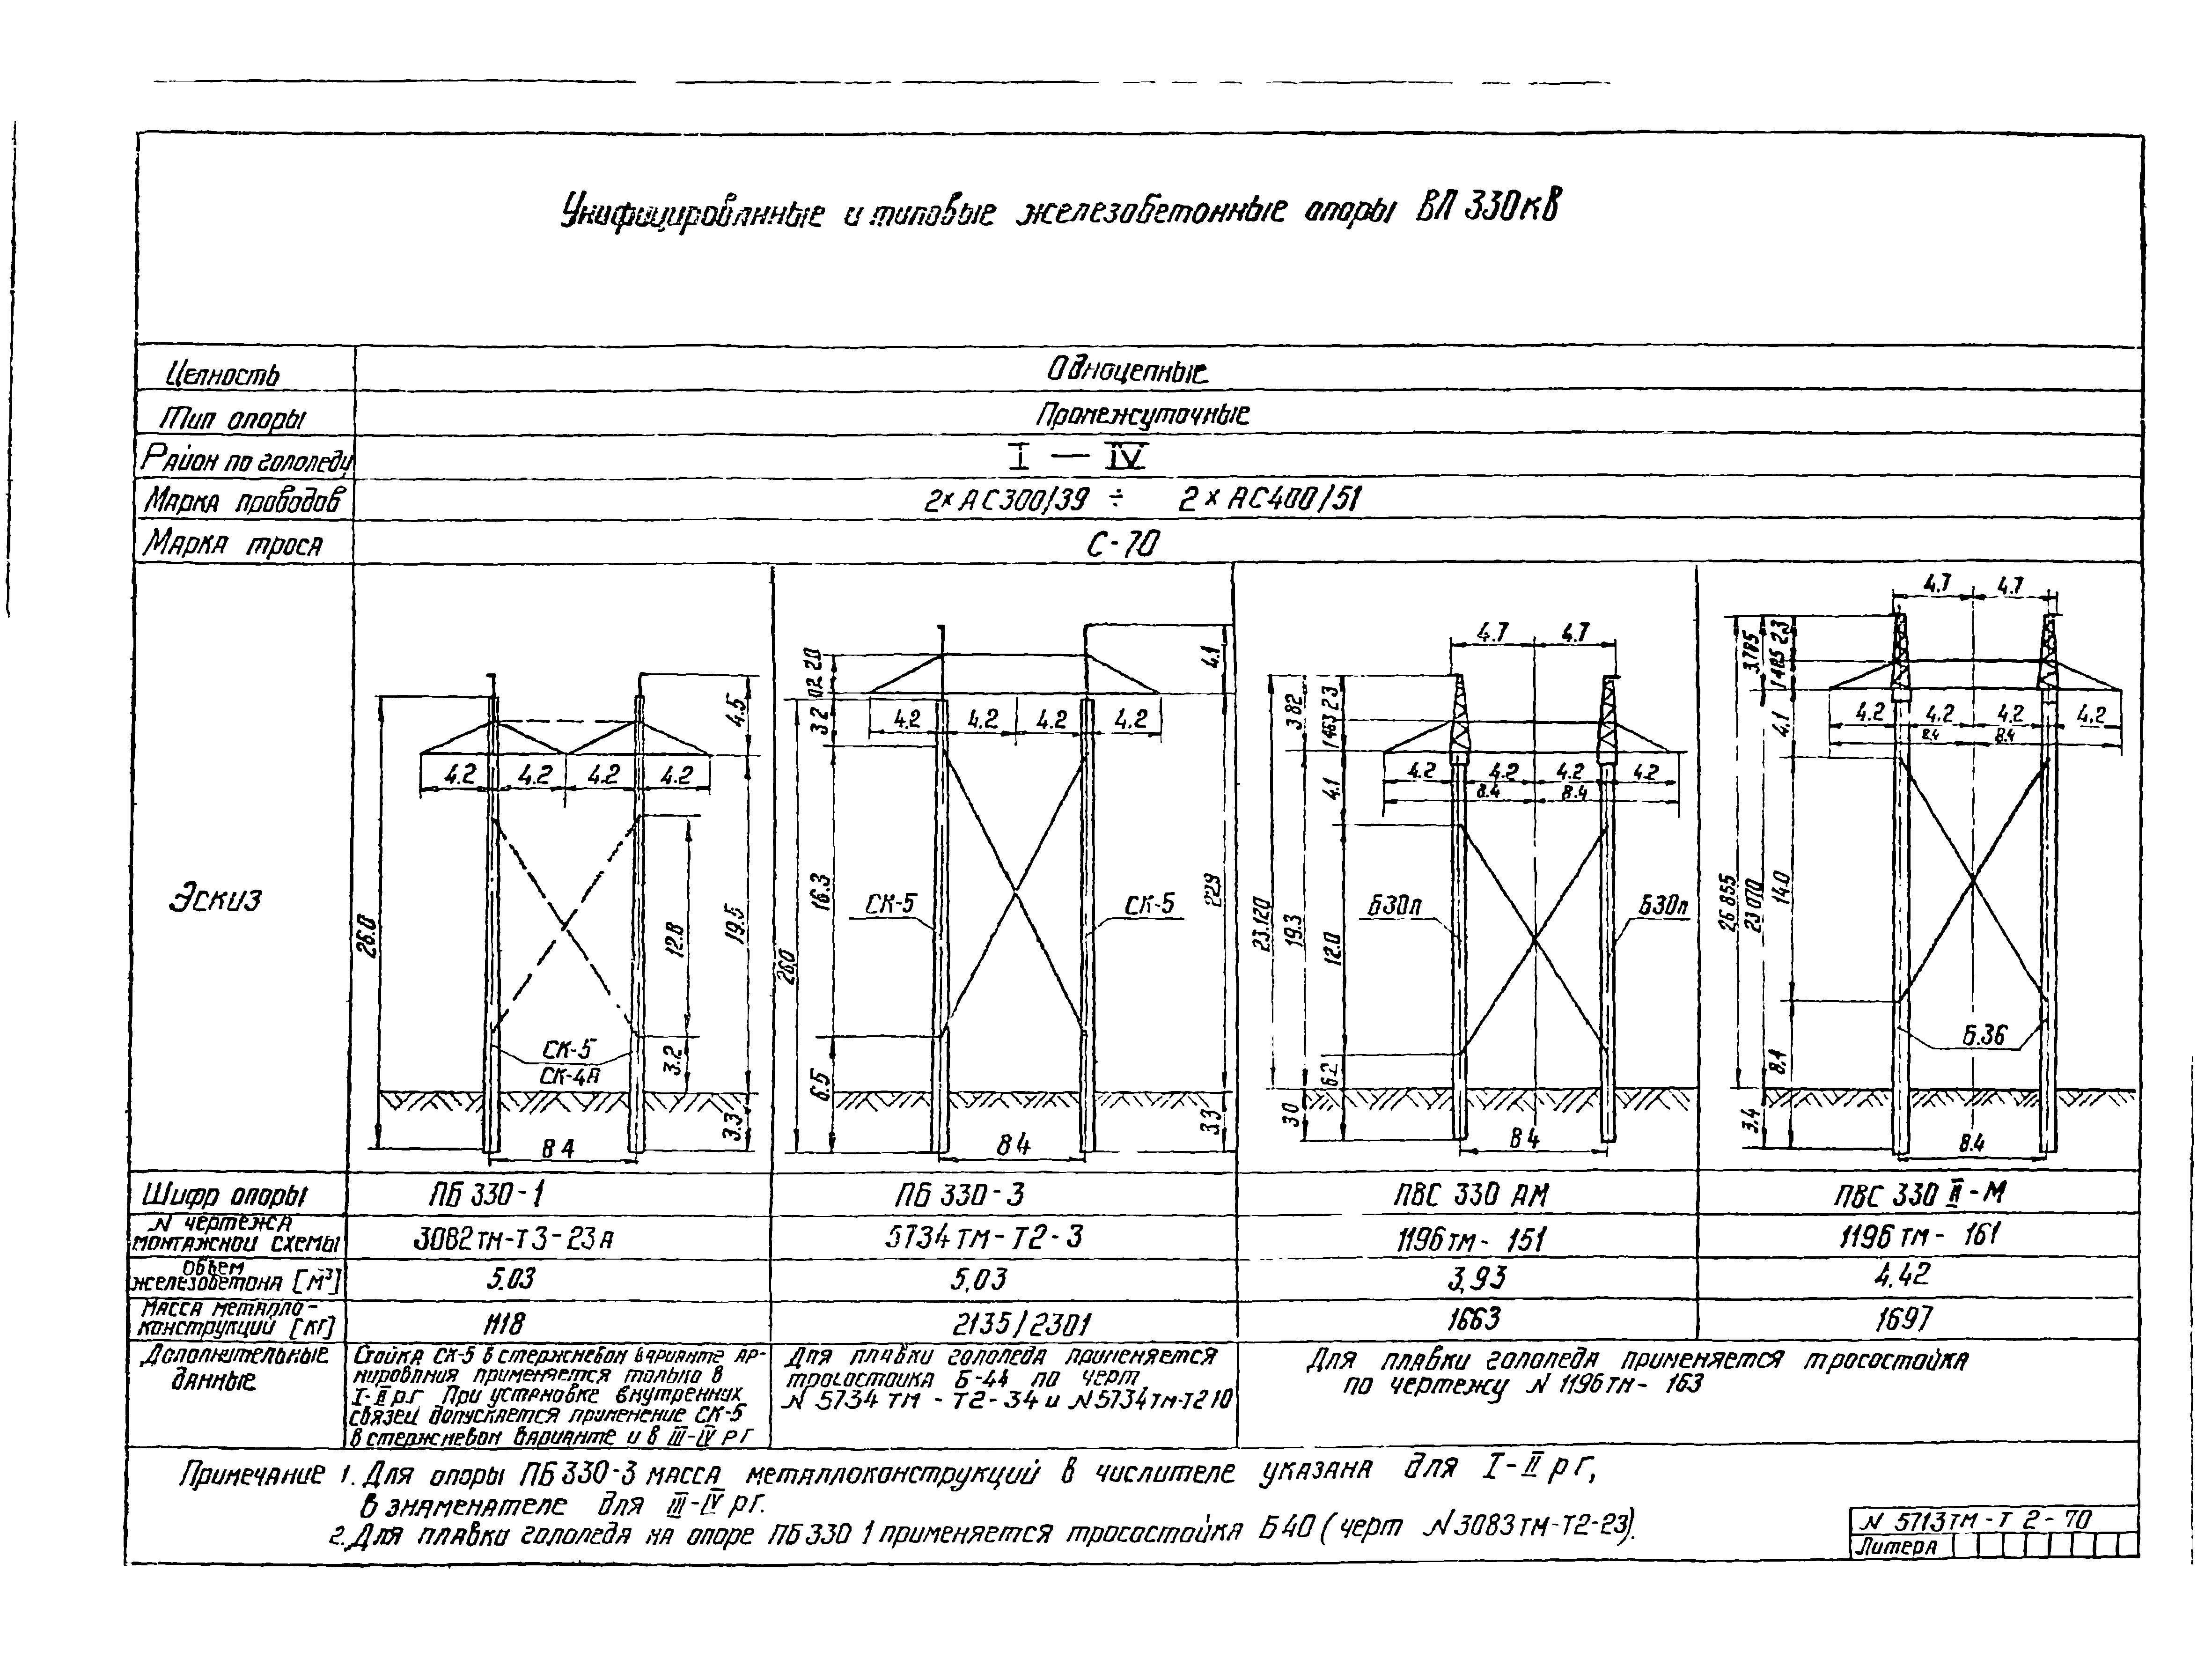 Унифицированные и типовые железобетонные опоры ВЛ 330кВ
Цепность
Одноцепные
Тип опоры
Промежуточные
Район по гололеду
I — IV
Марка проводов
2×АС300/39 ÷ 2×АС400/51
Марка троса
С-70
Эскиз
26.0
4.2 4.2 4.2 4.2
4.5
19.5
12.8
3.2
3.3
СК-5
СК-4А
8 4
2.0
0.2
3.2
16.3
26.0
6.5
4.2 4.2 4.2 4.2
СК-5 СК-5
4.1
3.3
8 4
4.7 4.7
3 82
2 3
1 463
4.1
23.120
19.3
12.0
6.2
3 0
4.2 4.2 4.2 4.2
8.4 8.4
Б30п Б30п
8 4
4.7 4.7
3.785
2.3
1 485
4.1
26 855
23 070
14.0
8.1
3.4
4.2 4.2 4.2 4.2
8.4 8.4
Б.36
8.4
Шифр опоры
ПБ 330-1
ПБ 330-3
ПВС 330 АМ
ПВС 330 II-М
N чертежа
монтажной схемы
3082тм-Т3-23А
5734тм-Т2-3
1196тм- 151
1196тм- 161
Объем
железобетона [м³]
5.03
5,03
3,93
4.42
Масса металло-
конструкций [кг]
1118
2135/2301
1663
1697
Дополнительные
данные
Стойка СК-5 в стержневом варианте ар-
мирования применяется только в
I-II р.г При установке внутренних
связей допускается применение СК-5
в стержневом варианте и в III-IV р г
Для плавки гололеда применяется
тросостойка Б-44 по черт
N 5734 тм - Т2-34 и N5734тм-Т2 10
Для плавки гололеда применяется тросостойка
по чертежу N 1196тм- 163
Примечание 1. Для опоры ПБ330-3 масса металлоконструкций в числителе указана для I-II р г,
в знаменателе для III-IV р г.
2. Для плавки гололеда на опоре ПБ330 1 применяется тросостойка Б40 (черт N3083тм-Т2-23).
N 5713тм-Т 2-70
Литера